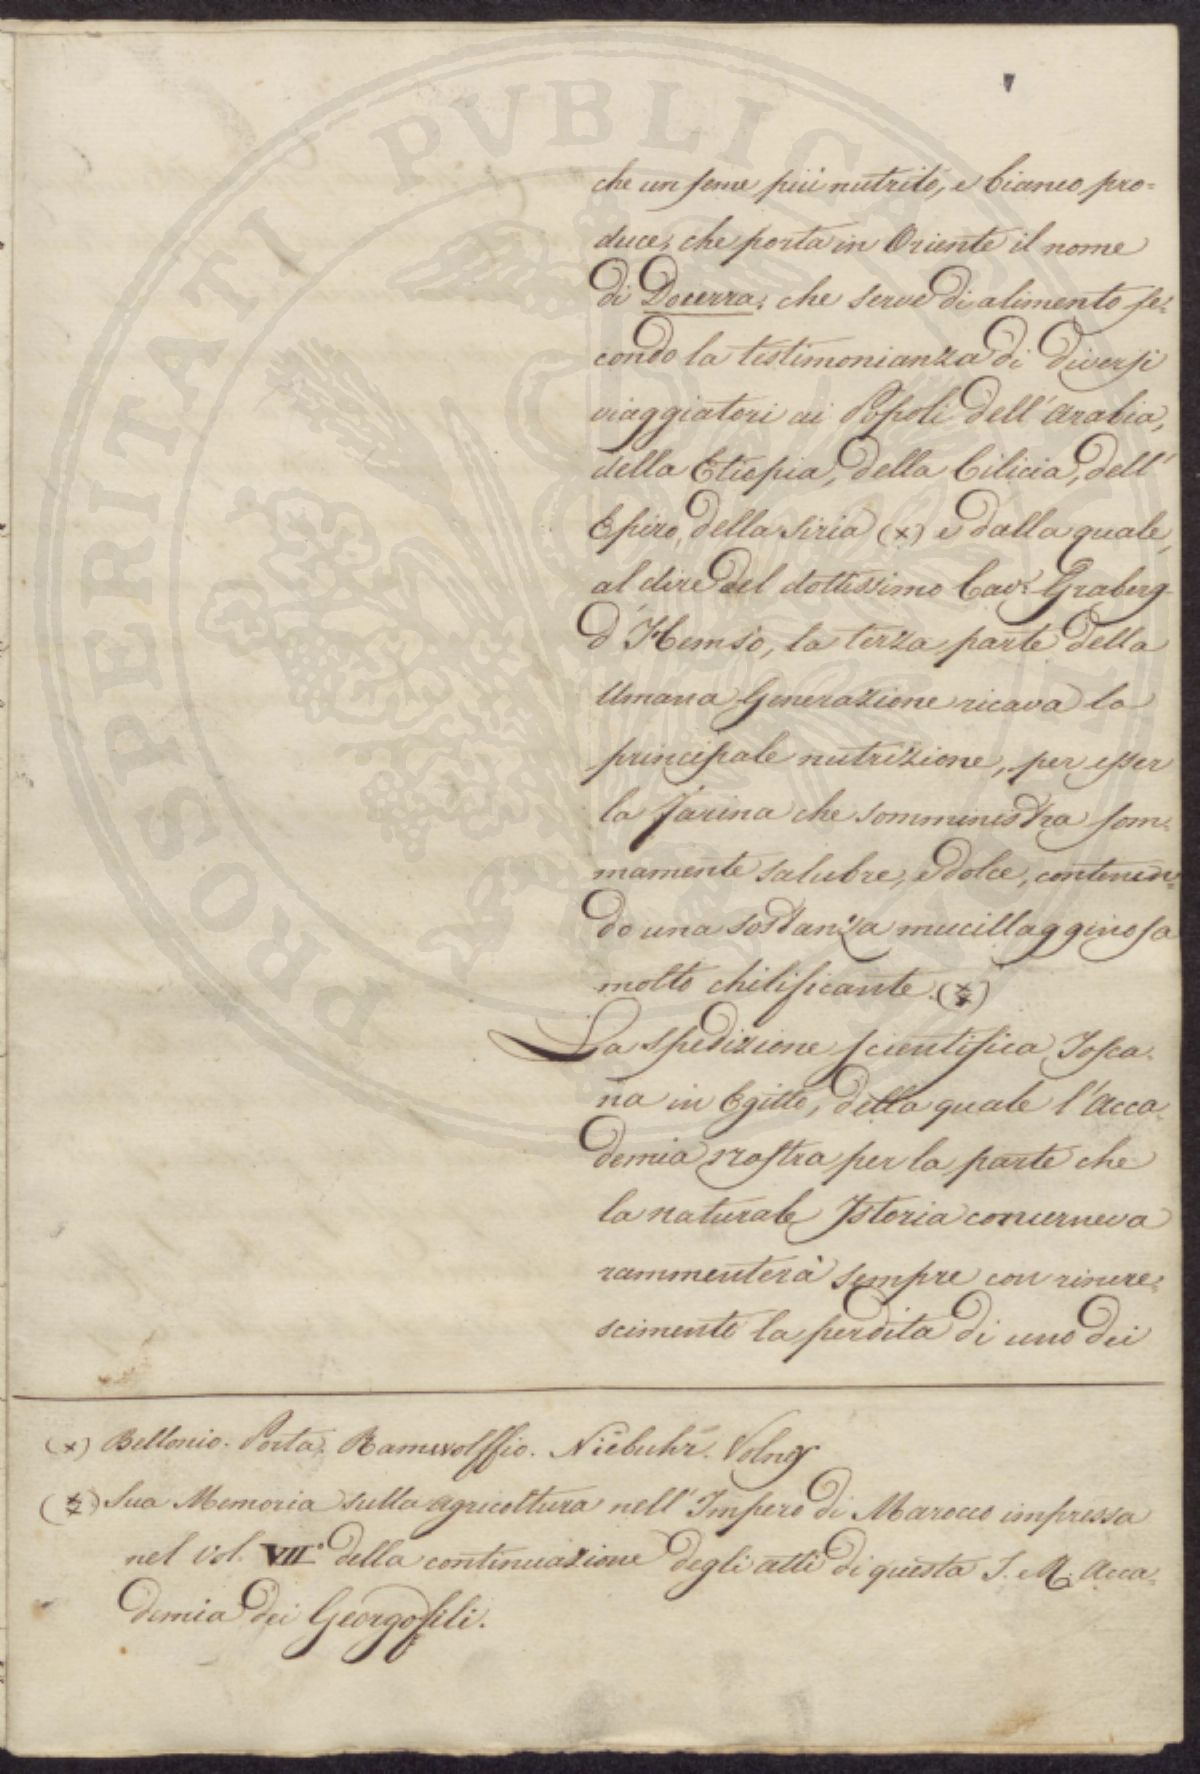 PROSPERITATI PVBLICAE
che un seme più nutrito, e bianco pro=
duce, che porta in Oriente il nome
di Docerra, che serve di alimento se=
condo la testimonianza di diversi
viaggiatori ai Popoli dell'Arabia,
della Etiopia, della Cilicia, dell'
Epiro, della Siria (x) e dalla quale,
al dire del dottissimo Cav.r Graberg
d'Hemsò, la terza parte della
Umana Generazione ricava la
principale nutrizione, per esser
la farina che somministra som=
mamente salubre, e dolce, contenen=
do una sostanza mucillagginosa
molto chilificante. (x)
La spedizione scientifica Tosca=
na in Egitto, della quale l'Acca=
demia nostra per la parte che
la naturale Istoria concerneva
rammenterà sempre con rincre=
scimento la perdita di uno dei
(x) Bellonio. Porta. Ramwolffio. Niebuhr. Volney
(x) Sua Memoria sulla agricoltura nell'Impero di Marocco impressa
nel vol. VII.° della continuazione degli atti di questa I. e R. Acca=
demia dei Georgofili.